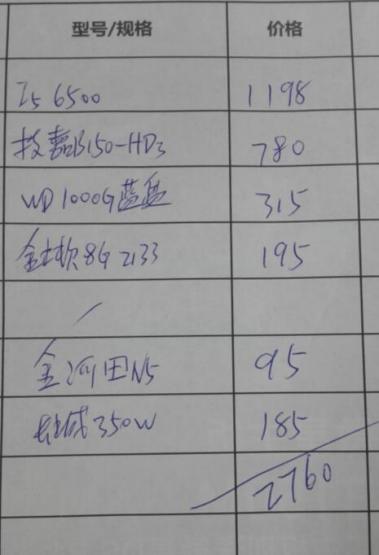 型号/规格 价格
I5 6500 1198
技嘉B150-HD3 780
WD 1000G蓝盘 315
8G 2133 195
/
金河田N5 95
长城350W 185
2760